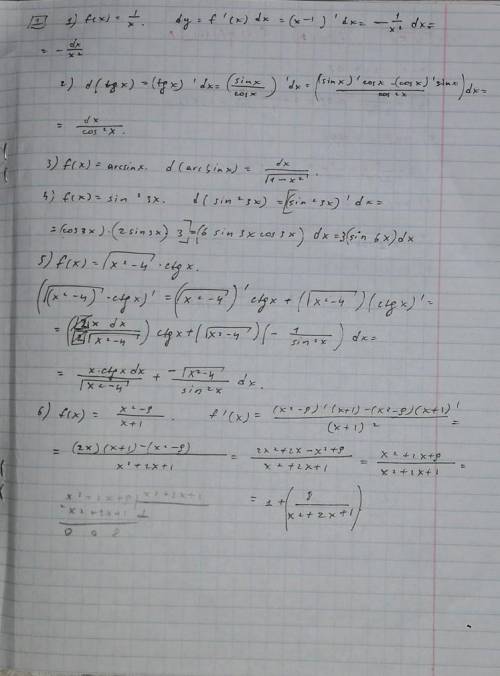 1 1) f(x) = 1/x. dy = f'(x) dx = (x-1)' dx = - 1/x² dx =
= - dx/x²
2) d(tgx) = (tgx)' dx = (sinx/cosx)' dx = ((sinx)' cosx - (cosx)' sinx / cos²x) dx =
= dx/cos²x.
3) f(x) = arcsinx. d(arcsinx) = dx/√(1-x²).
4) f(x) = sin²3x. d(sin²3x) = [(sin²3x)' dx =
= (cos3x)·(2sin3x) 3] = (6 sin3x cos3x) dx = 3(sin6x)dx
5) f(x) = √(x²-4) · ctgx.
(√(x²-4) · ctgx)' = (√(x²-4))' ctgx + (√(x²-4)) (ctgx)' =
= (2x dx / 2√(x²-4)) ctgx + (√(x²-4)) (- 1/sin²x) dx =
= x·ctgx dx/√(x²-4) + -√(x²-4)/sin²x dx.
6) f(x) = x²-9/x+1. f'(x) = (x²-9)'(x+1)-(x²-9)(x+1)'/(x+1)² =
= (2x)(x+1)-(x²-9)/x²+2x+1 = 2x²+2x-x²+9/x²+2x+1 = x²+2x+9/x²+2x+1 =
= 1 + (8/x²+2x+1)
x²+2x+9 x²+2x+1
x²+2x+1 1
0 0 8